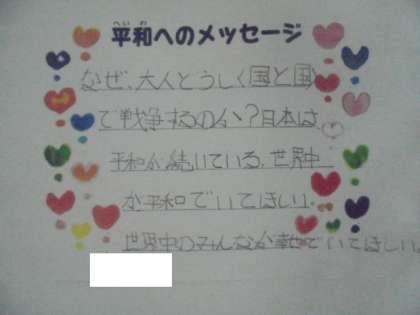 へいわ
平和へのメッセージ
なぜ、大人どうしく国と国
で戦争するのか?日本は
平和が続いている。世界中
が平和でいてほしい。
世界中のみんなが幸せでいてほしい。